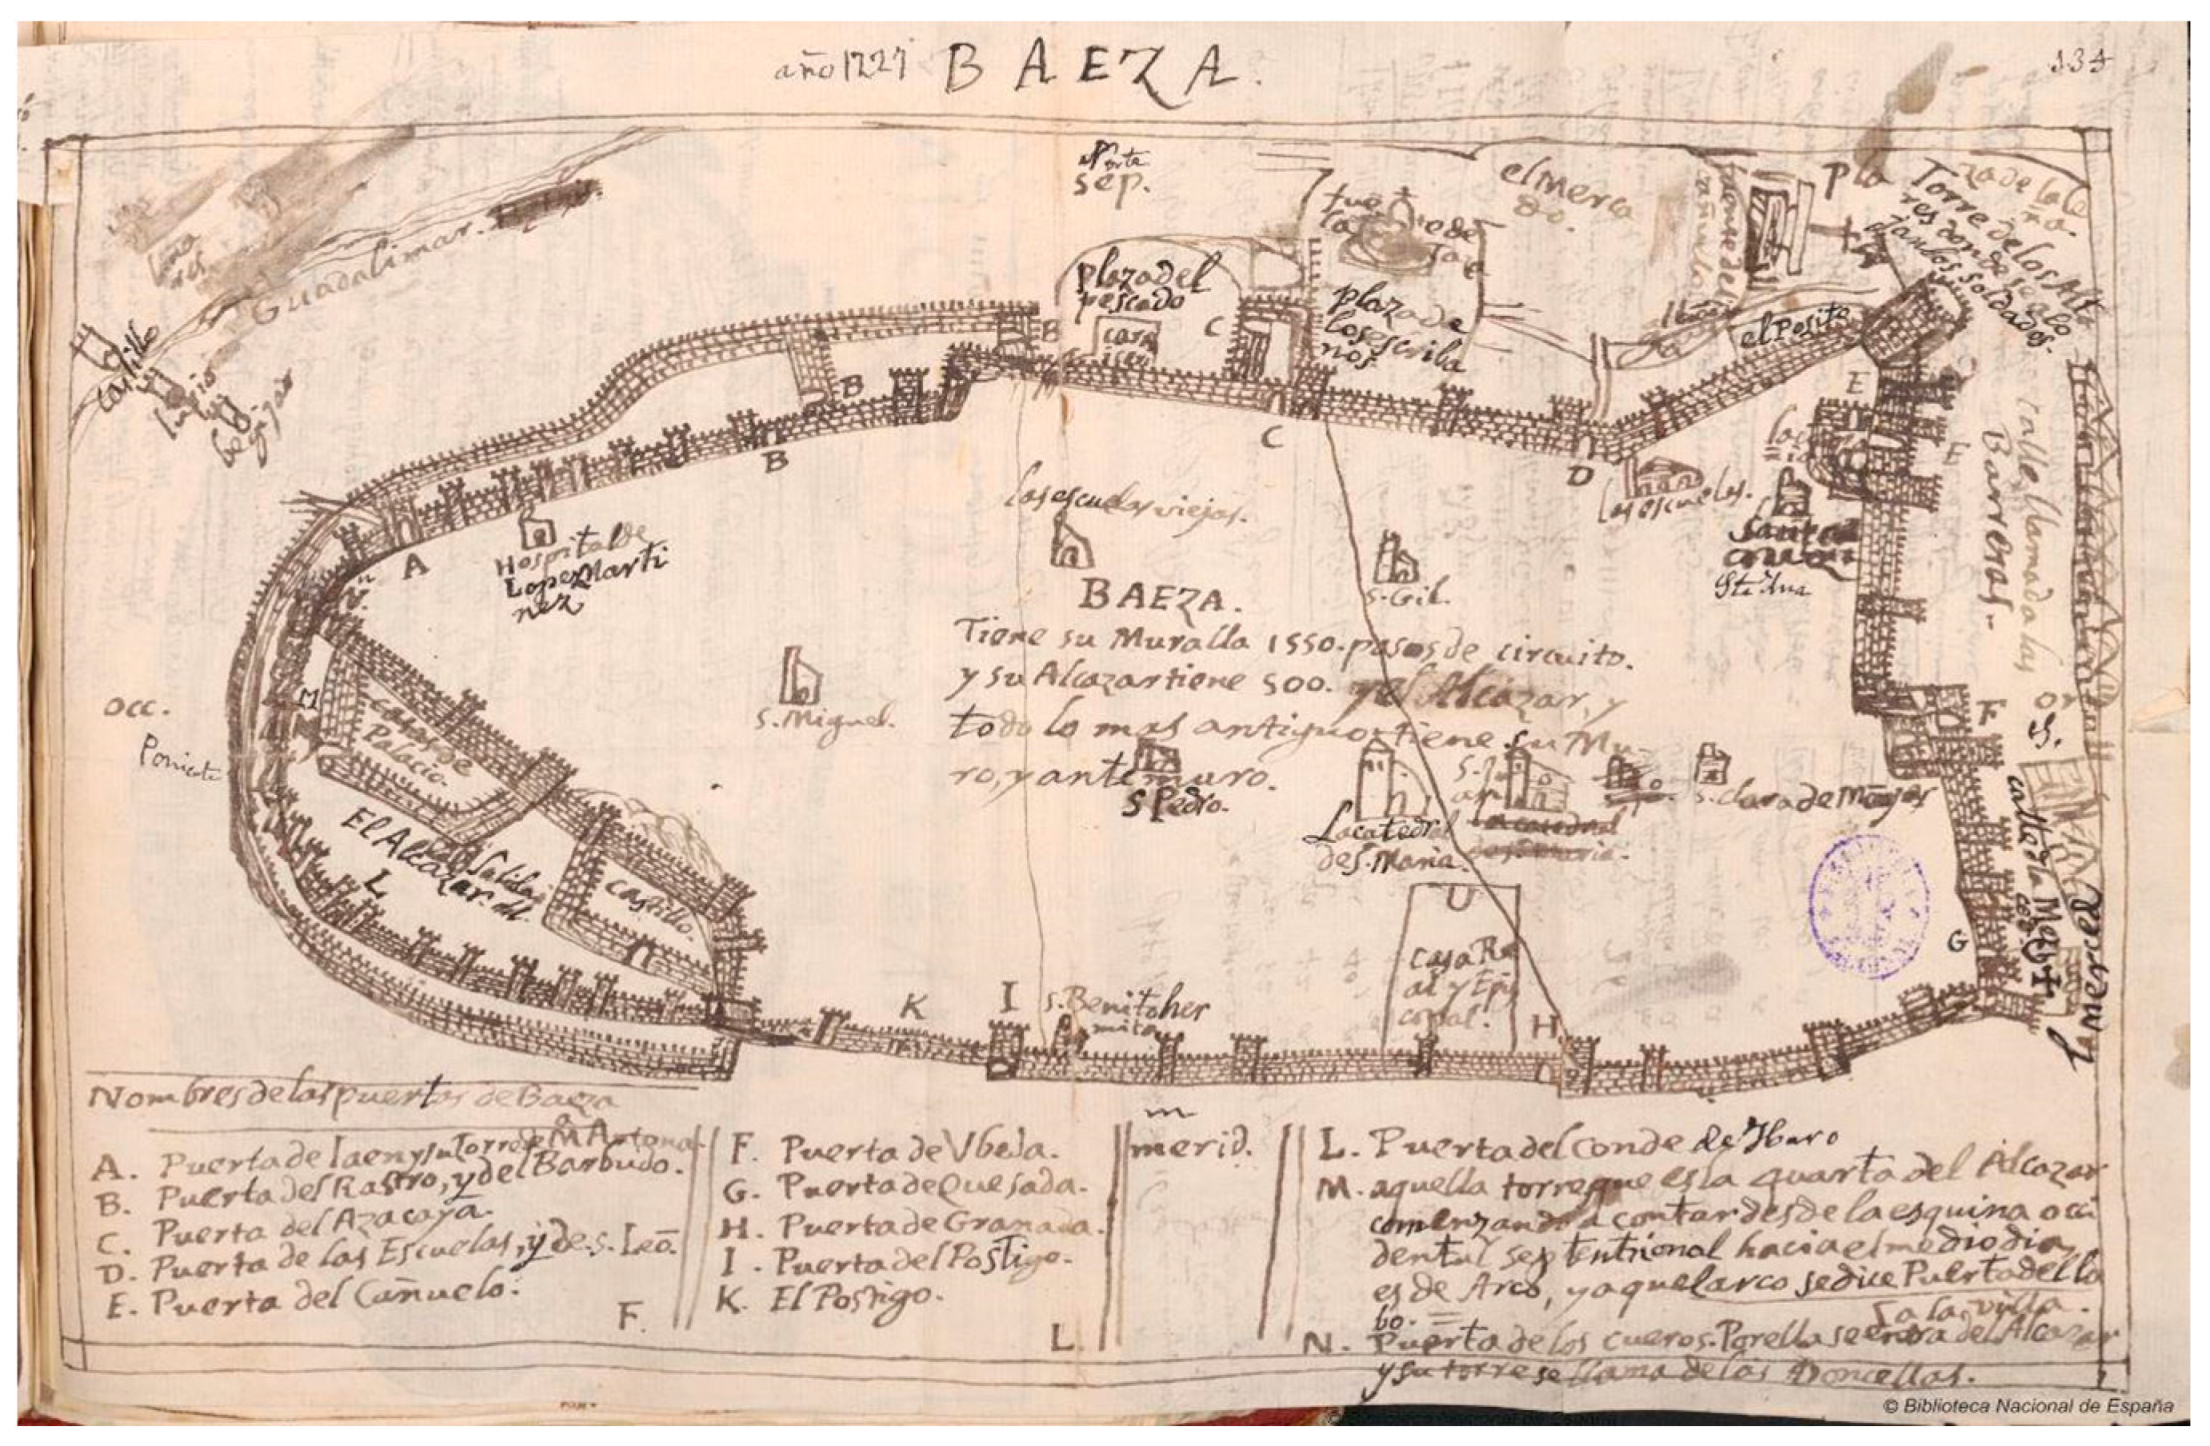 año 1227 BAEZA.
134
sep.
el Merca
do.
Guadalimar.
castillo
lupio
begijar
plaza del
pescado
casa
C
B
plaza de
los escriba
nos
Torre de los Alt
res donde se a lo
jan los soldados.
el Posito
B
B
C
D
E
E
calle llamada las
Barreras.
las escuelas.
Sta Ana
las escuelas viejas.
A
Hospital de
Lopez Marti
nez
S. Gil.
BAEZA.
Tiene su Muralla 1550. pasos de circuito.
y su Alcazar tiene 500. y el Alcázar, y
todo lo mas antiguo tiene su Mu-
ro, y antemuro.
S. Miguel.
occ.
Poniente
M
casas de
Palacio.
F
or
S Pedro.
La catedral
de S. Maria.
S. Clara de Monjas
El Alcazar
L
castillo.
calle de la
la merced
G
casa Re
al y Epis
copal.
K
I
S. Benito her
mita
H
Nombres de las puertas de Baeza
A. Puerta de Iaen y su Torre de M Antona
B. Puerta del Rastro, y del Barbudo.
C. Puerta del Azacaya.
D. Puerta de las Escuelas, y de S. Leō.
E. Puerta del Cañuelo.
F.
F. Puerta de Vbeda.
G. Puerta de Quesada.
H. Puerta de Granada.
I. Puerta del Postigo.
K. El Postigo.
L.
merid.
L. Puerta del Conde de Haro
M. aquella torre que es la quarta del Alcazar
comenzando a contar desde la esquina occi
dental septentrional hacia el mediodia,
es de Arco, y aquel arco se dice Puerta del lo
bo. =
N. Puerta de los cueros. Por ella se entra del Alcazar
a la villa.
y su torre se llama de las Doncellas.
© Biblioteca Nacional de España